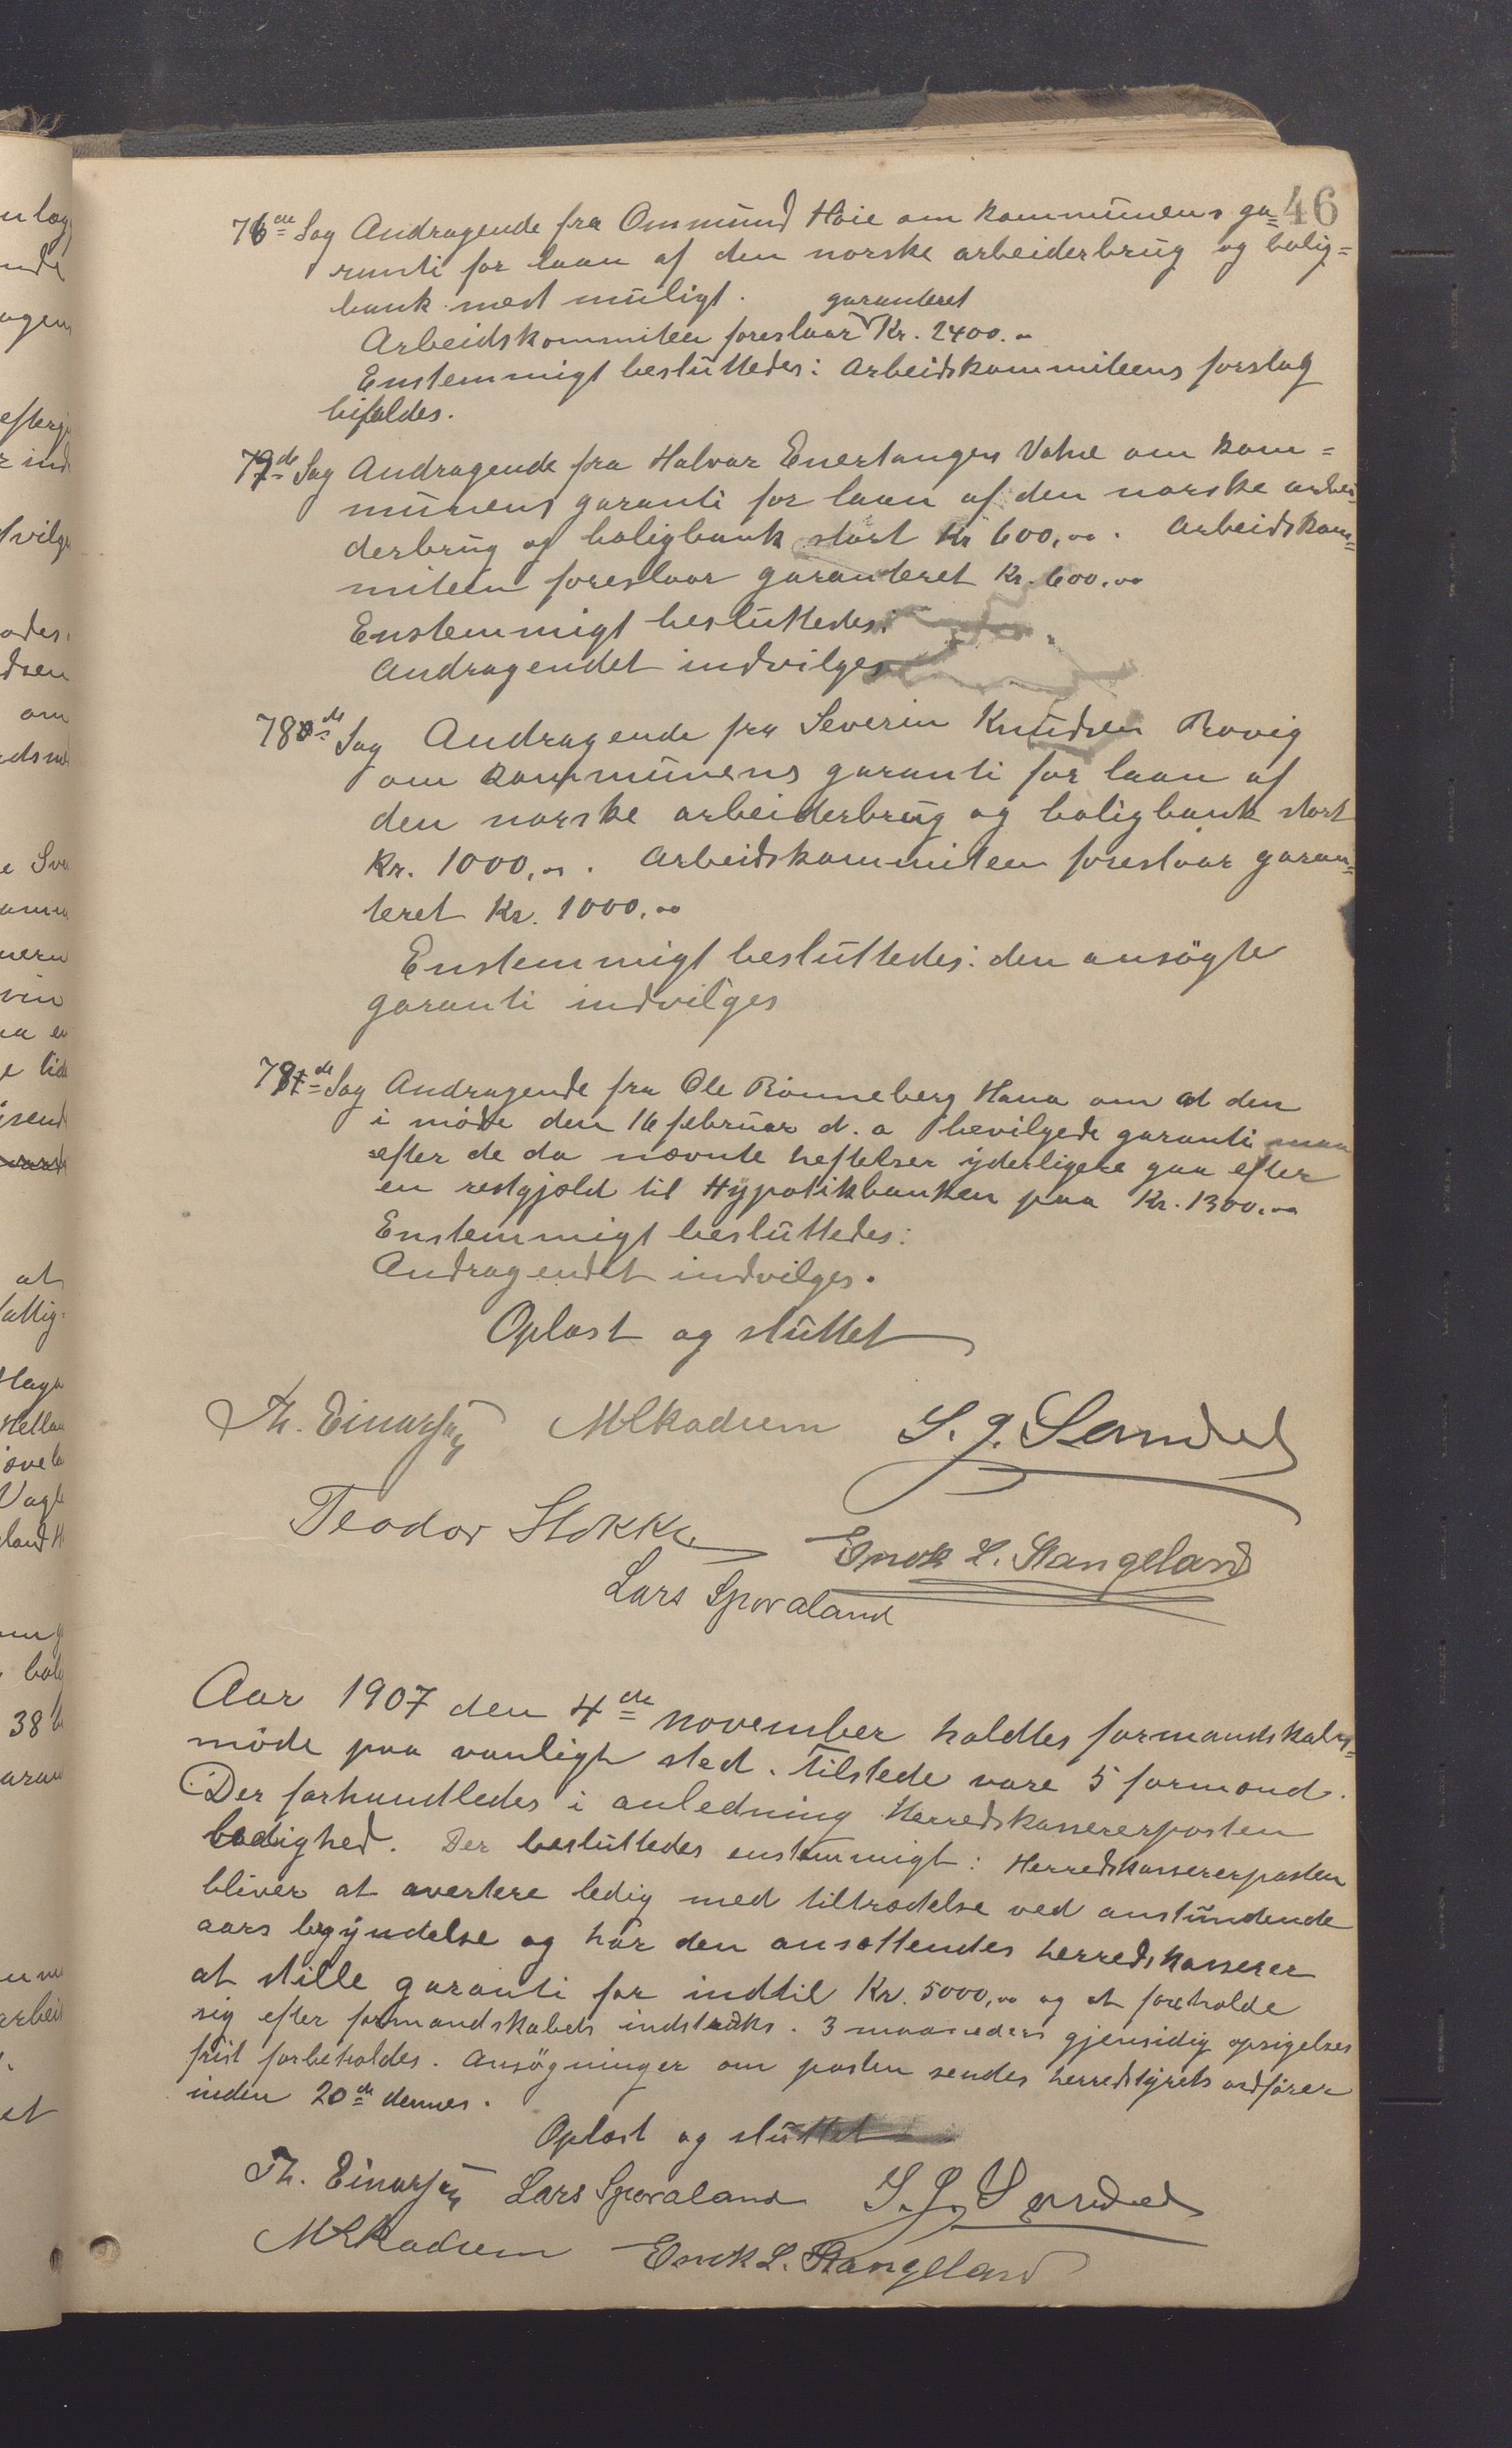 46
76de Sag Andragende fra Ommund Høie om kommunens ga=
ranti for laan af den norske arbeiderbrug og bolig=
bank mest muligt.
Arbeidskommiteen foreslaar garanteret Kr. 2400.00
Enstemmigt besluttedes: Arbeidskommiteens forslag
bifaldes.
77de Sag Andragende fra Halvor Enertangen Vatne om kom=
munens garanti for laan af den norske arbei=
derbrug og boligbank stort Kr 600,00. Arbeidskom=
miteen foreslaar garanteret Kr. 600.00
Enstemmigt besluttedes:
Andragendet indvilges
78de Sag Andragende fra Severin Knudsen Rovig
om kommunens garanti for laan af
den norske arbeiderbrug og boligbank stort
Kr. 1000,00. Arbeidskommiteen foreslaar garan=
teret Kr. 1000,00
Enstemmigt besluttedes: den ansøgte
garanti indvilges
Sag Andragende fra Ole Rønneberg Hana om at den
i møde den 16 februar d. a bevilgede garanti maa
efter de da nævnte heftelser yderligere gaa efter
en restgjæld til Hypotikbanken paa Kr. 1300.00
Enstemmigt besluttedes:
Andragendet indvilges.
Oplæst og sluttet
Th. Einarsen M Skadsem S. J. Sandved
Teodor Stokke Enok L. Stangeland
Lars Sporaland
Aar 1907 den 4de november holdtes formandskabs=
møde paa vanligt sted. Tilstede vare 5 formænd.
Der forhandledes i anledning Herredskassererposten
ledighed. Der besluttedes enstemmigt: Herredskassererposten
bliver at avertere ledig med tiltrædelse ved anstundende
aars begyndelse og har den ansættendes herredskasserer
at stille garanti for indtil Kr. 5000,00 og at foreholde
sig efter formandskabets instruks. 3 maaneders gjensidig opsigelses
frist forbeholdes. Ansøgninger om posten sendes herredstyrets ordfører
inden 20de dennes.
Oplæst og sluttet
Th. Einarsen Lars Sporaland S. J. Sandved
M Skadsem Enok L. Stangeland